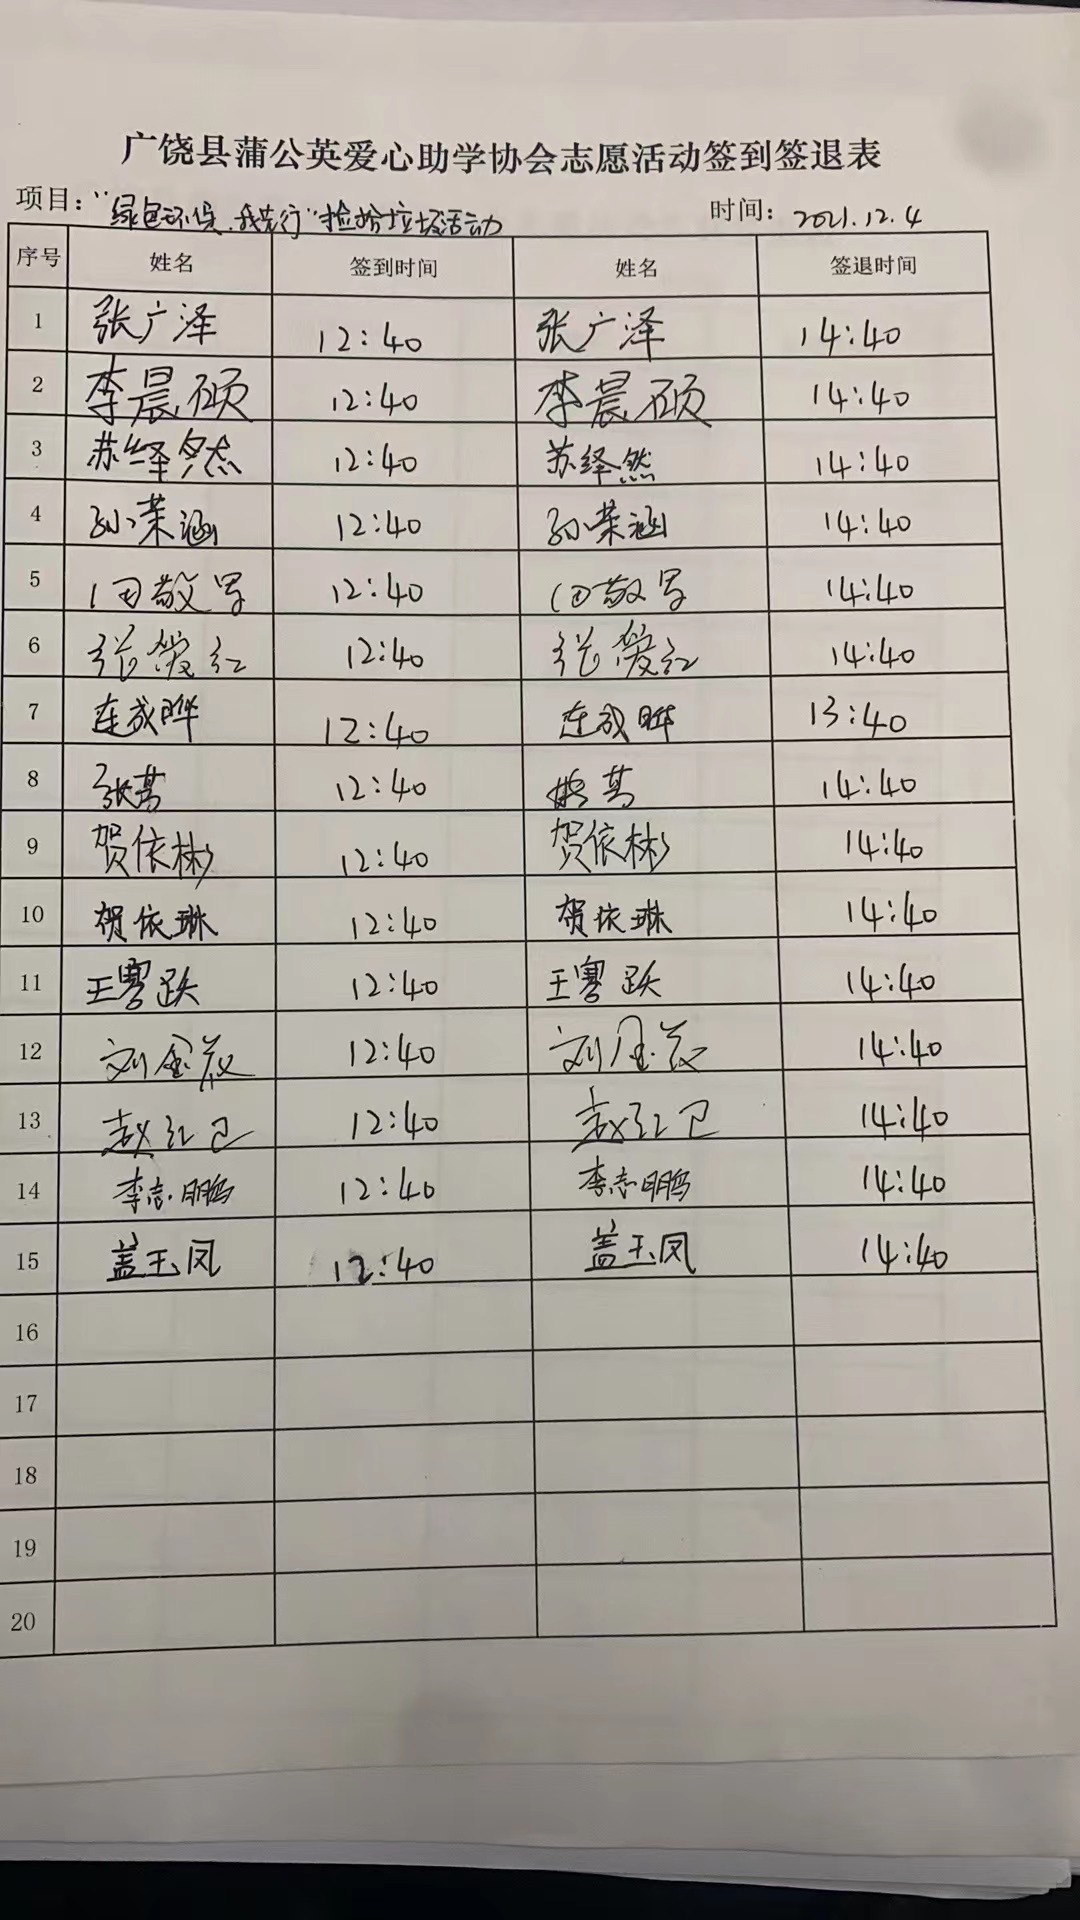 广饶县蒲公英爱心助学协会志愿活动签到签退表
项目：“绿色环保，我先行”捡拾垃圾活动 时间：2021.12.4
序号 姓名 签到时间 姓名 签退时间
1 张广泽 12:40 张广泽 14:40
2 李晨硕 12:40 李晨硕 14:40
3 苏绎然 12:40 苏绎然 14:40
4 孙荣涵 12:40 孙荣涵 14:40
5 12:40 14:40
6 张爱红 12:40 张爱红 14:40
7 连成晔 12:40 连成晔 13:40
8 12:40 14:40
9 贺依彬 12:40 贺依彬 14:40
10 贺依琳 12:40 贺依琳 14:40
11 12:40 14:40
12 12:40 14:40
13 赵红卫 12:40 赵红卫 14:40
14 李志鹏 12:40 李志鹏 14:40
15 盖玉凤 12:40 盖玉凤 14:40
16
17
18
19
20